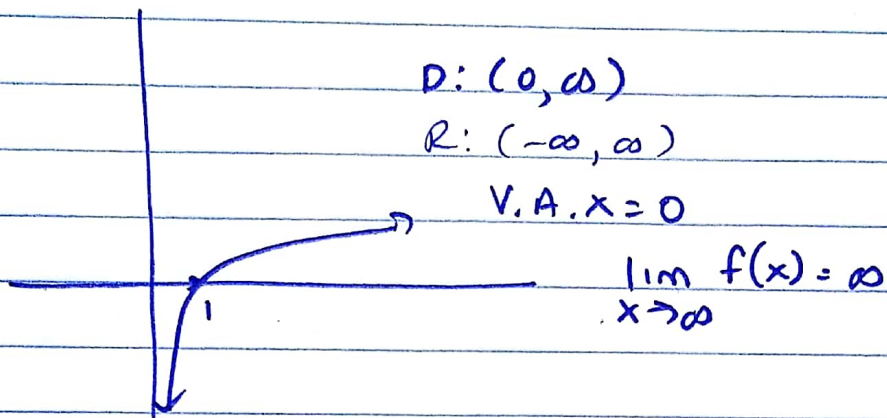 D: (0, ∞)
R: (-∞, ∞)
V.A. x = 0
lim f(x) = ∞
x→∞
1